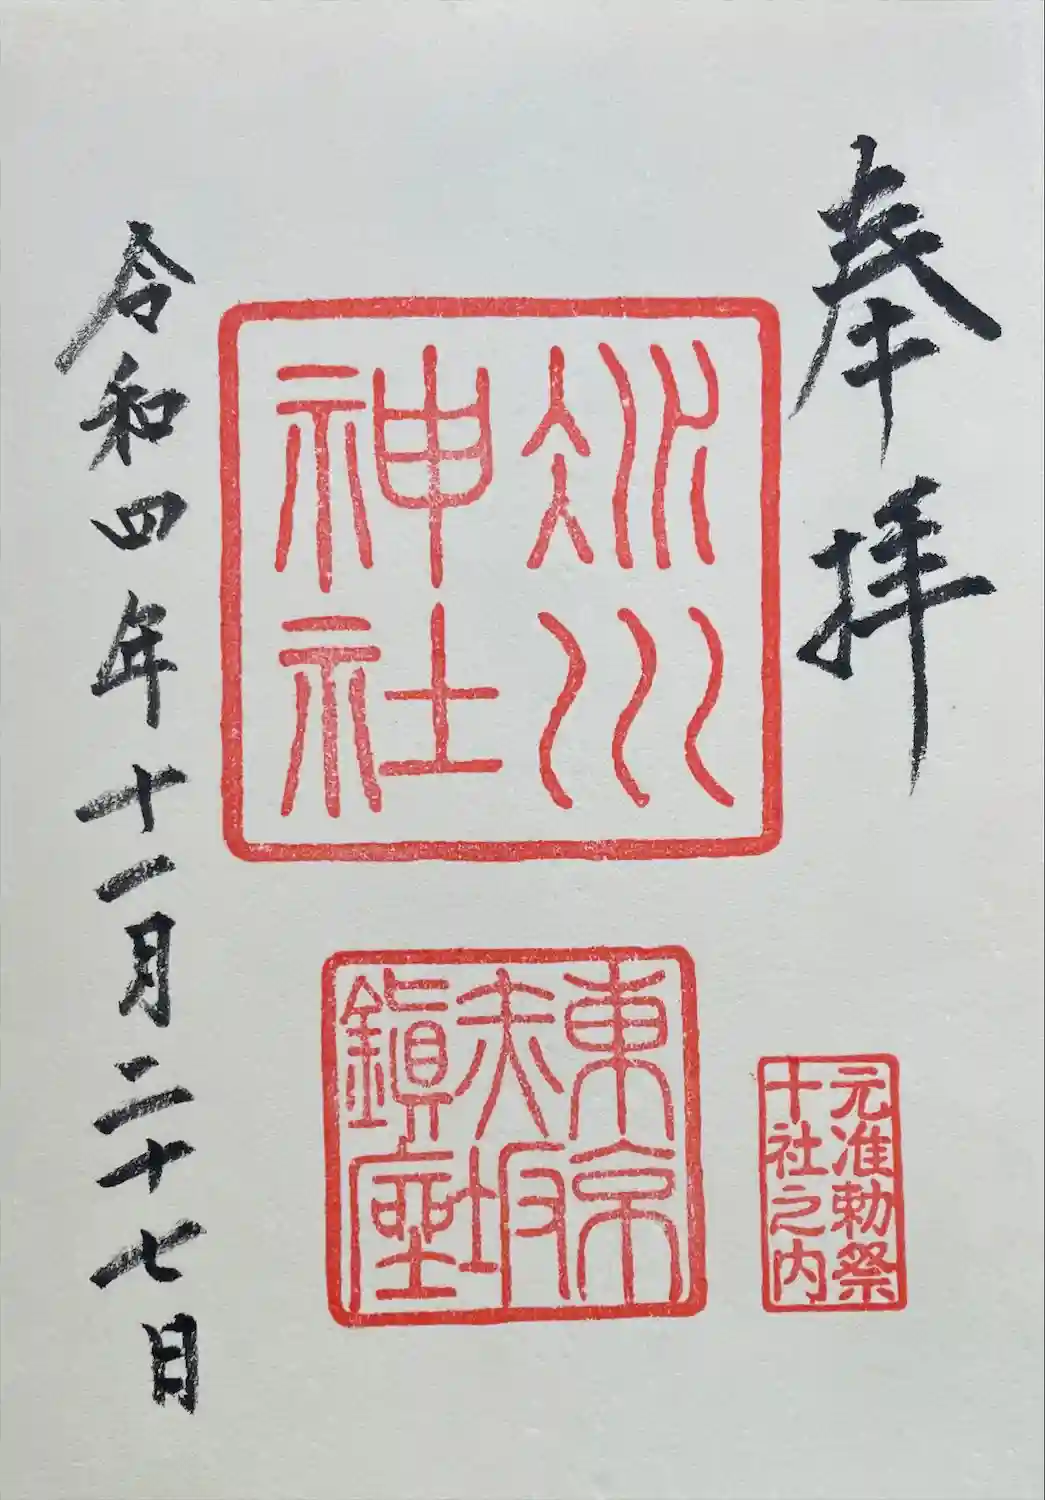 奉拝
冰川
神社
東京
赤坂
鎭座
元准勅祭
十社之内
令和四年十一月二十七日